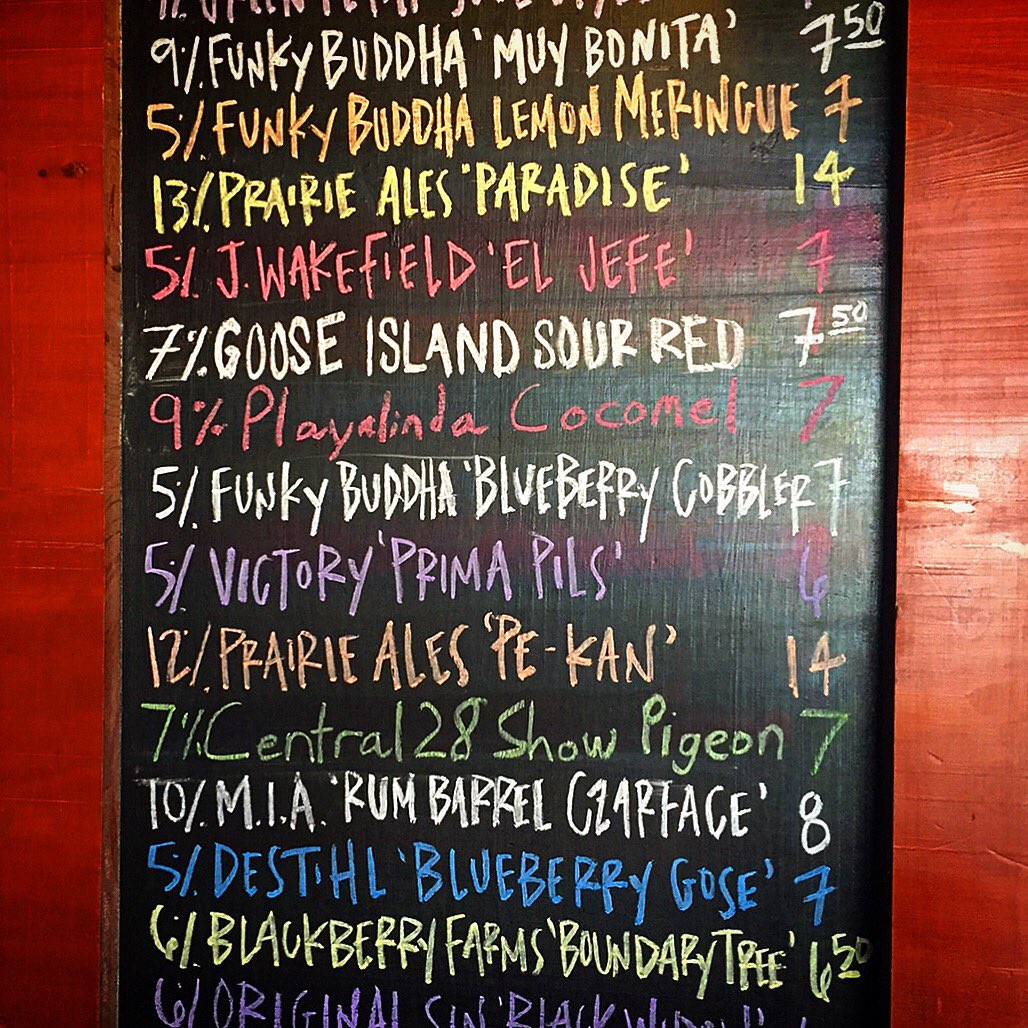 9% FUNKY BUDDHA 'MUY BONITA' 7 50
5% FUNKY BUDDHA LEMON MERINGUE 7
13% PRAIRIE ALES 'PARADISE' 14
5% J. WAKEFIELD 'EL JEFE' 7
7% GOOSE ISLAND SOUR RED 7 50
9% Playalinda Cocomel 7
5% FUNKY BUDDHA 'BLUEBERRY COBBLER 7
5% VICTORY 'PRIMA PILS' 6
12% PRAIRIE ALES 'PE-KAN' 14
7% Central 28 Show Pigeon 7
10% M.I.A. 'RUM BARREL CZARFACE' 8
5% DESTIHL 'BLUEBERRY GOSE' 7
6% BLACKBERRY FARMS 'BOUNDARY TREE' 6 50
6% ORIGINAL SIN 'BLACK WIDOW'